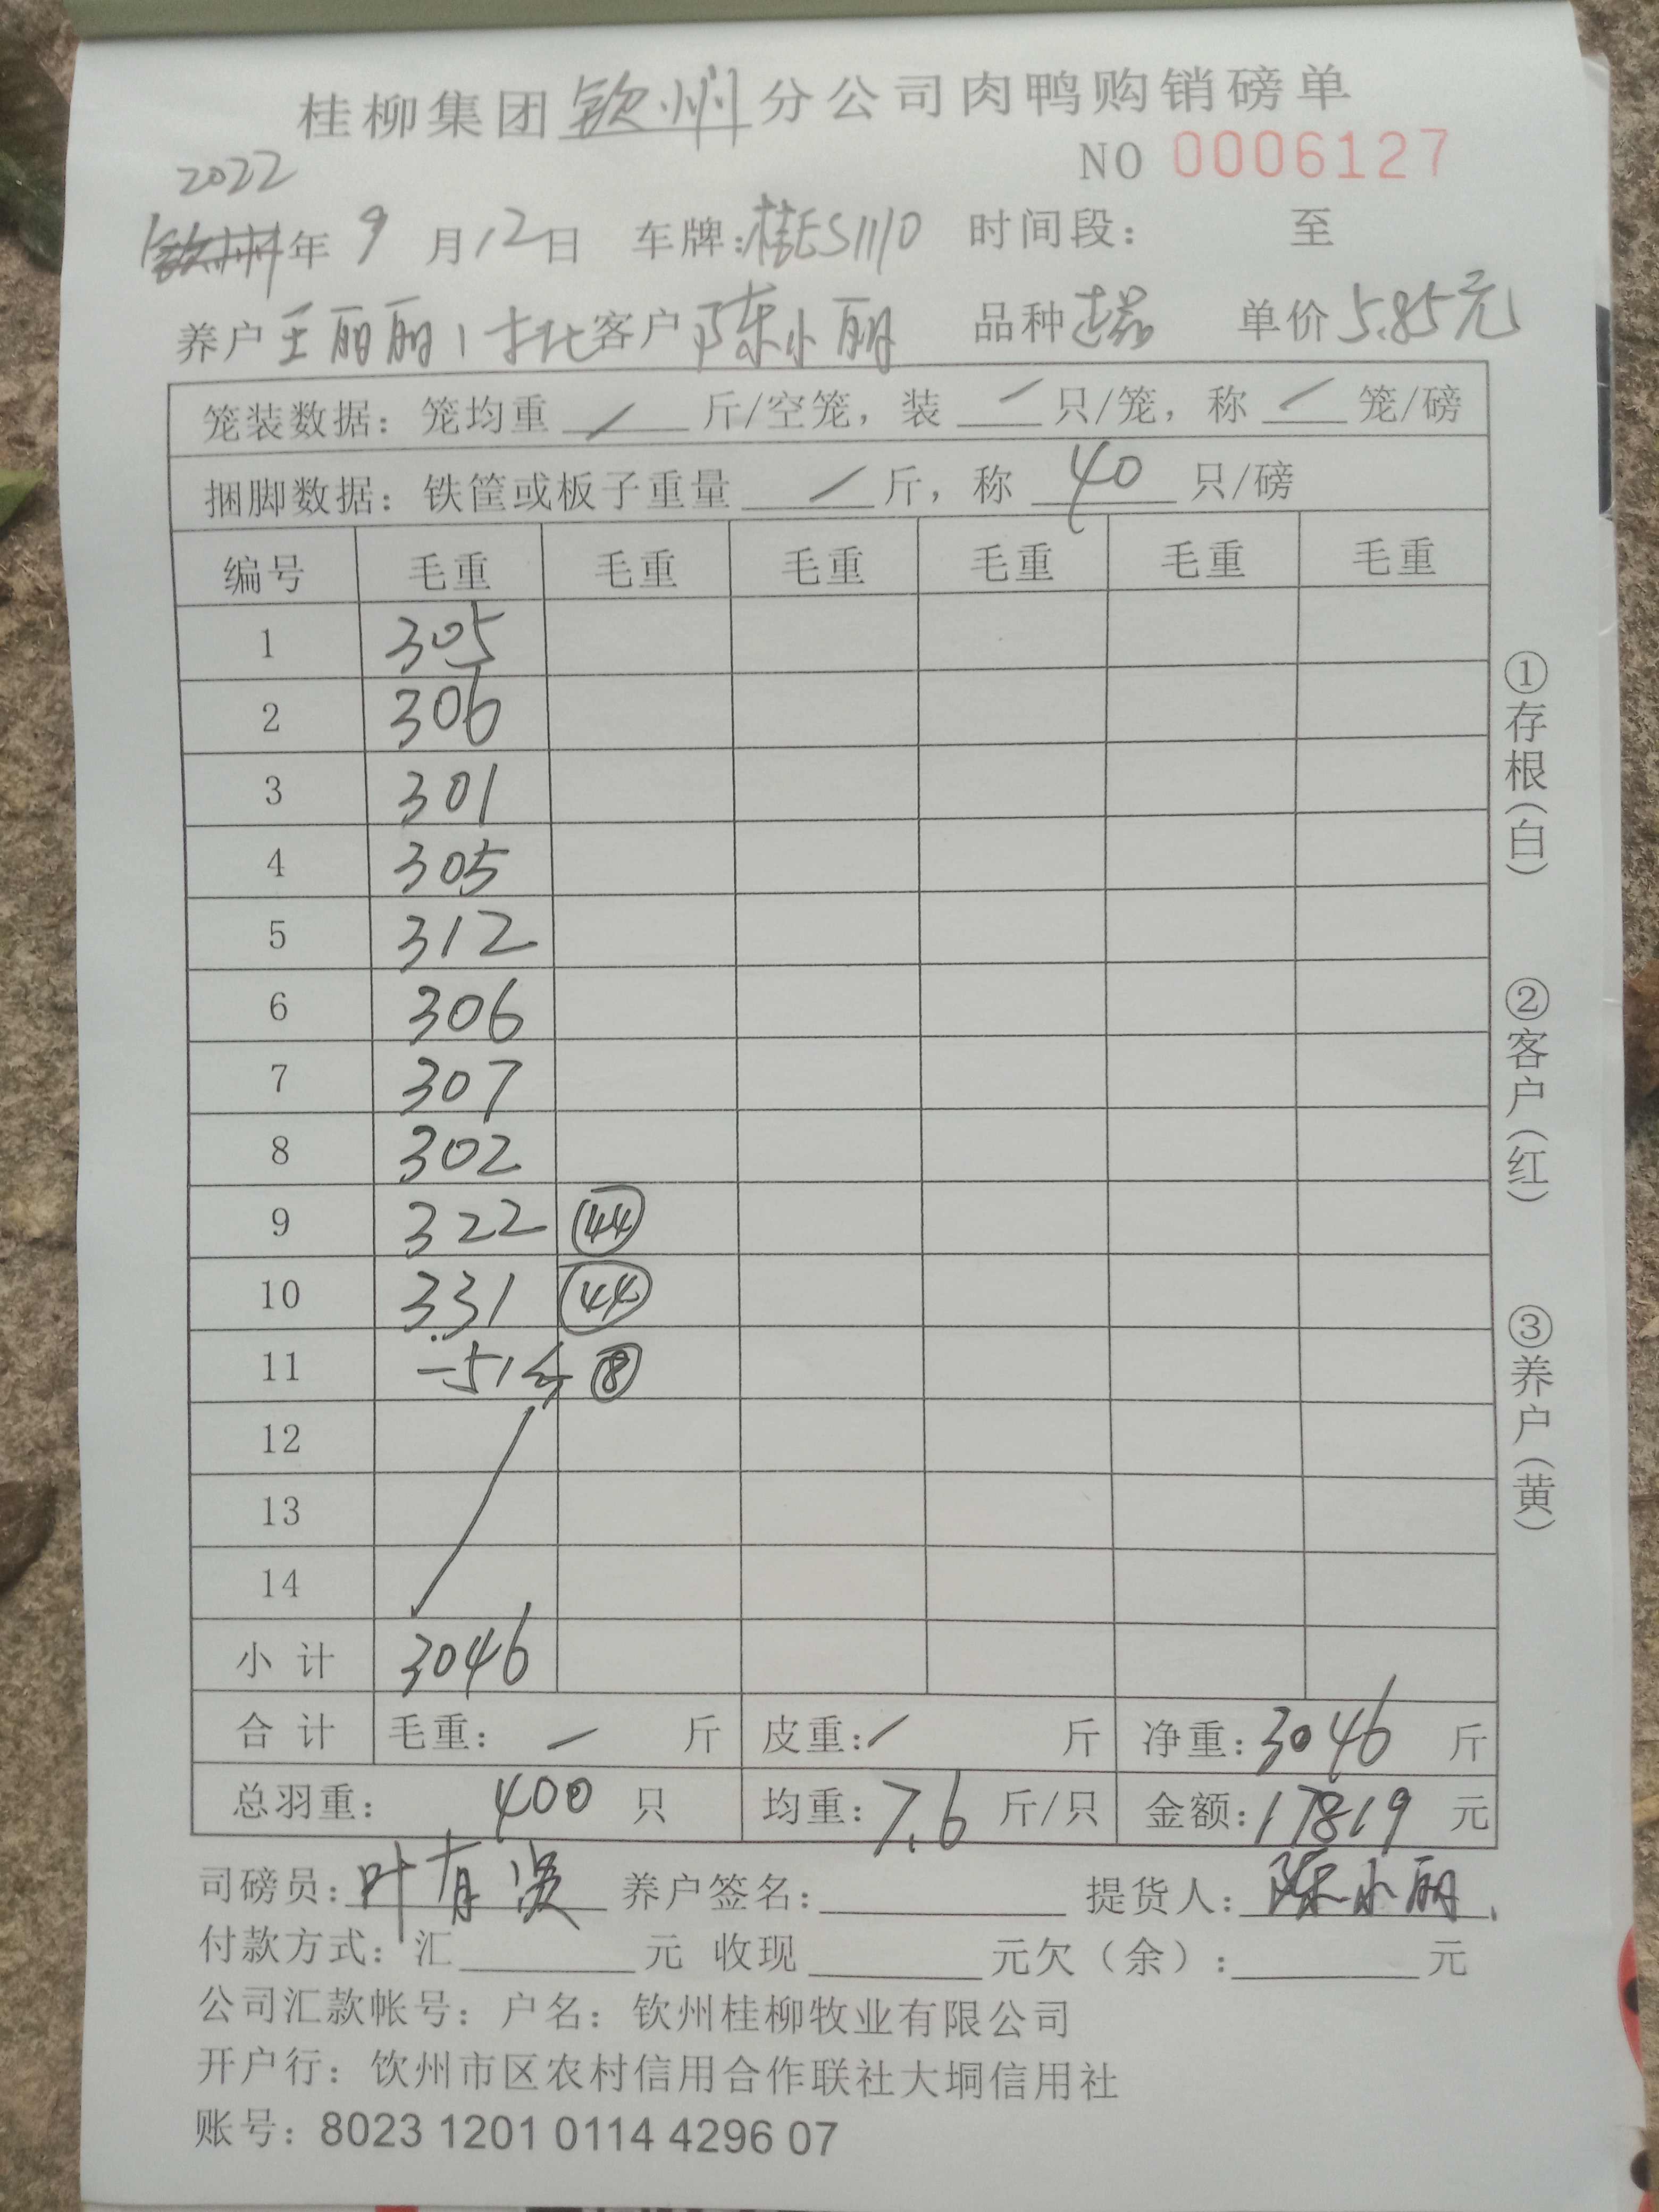 桂柳集团钦州分公司肉鸭购销磅单
NO 0006127
2022
年 9 月 12 日 车牌:桂ES1110 时间段: 至
养户 王丽丽1批 客户 陈小丽 品种 单价 5.85元
笼装数据: 笼均重 / 斤/空笼, 装 / 只/笼, 称 / 笼/磅
捆脚数据: 铁筐或板子重量 / 斤, 称 40 只/磅
编号 毛重 毛重 毛重 毛重 毛重 毛重
1 305
2 306
3 301
4 305
5 312
6 306
7 307
8 302
9 322 44
10 331 44
11 -51斤 8
12
13
14
小计 3046
合计 毛重: / 斤 皮重: / 斤 净重: 3046 斤
总羽重: 400 只 均重: 7.6 斤/只 金额: 17819 元
司磅员: 叶有 养户签名: 提货人: 陈小丽
付款方式: 汇 元 收现 元欠(余): 元
公司汇款帐号: 户名: 钦州桂柳牧业有限公司
开户行: 钦州市区农村信用合作联社大垌信用社
账号: 8023 1201 0114 4296 07
①存根(白)
②客户(红)
③养户(黄)